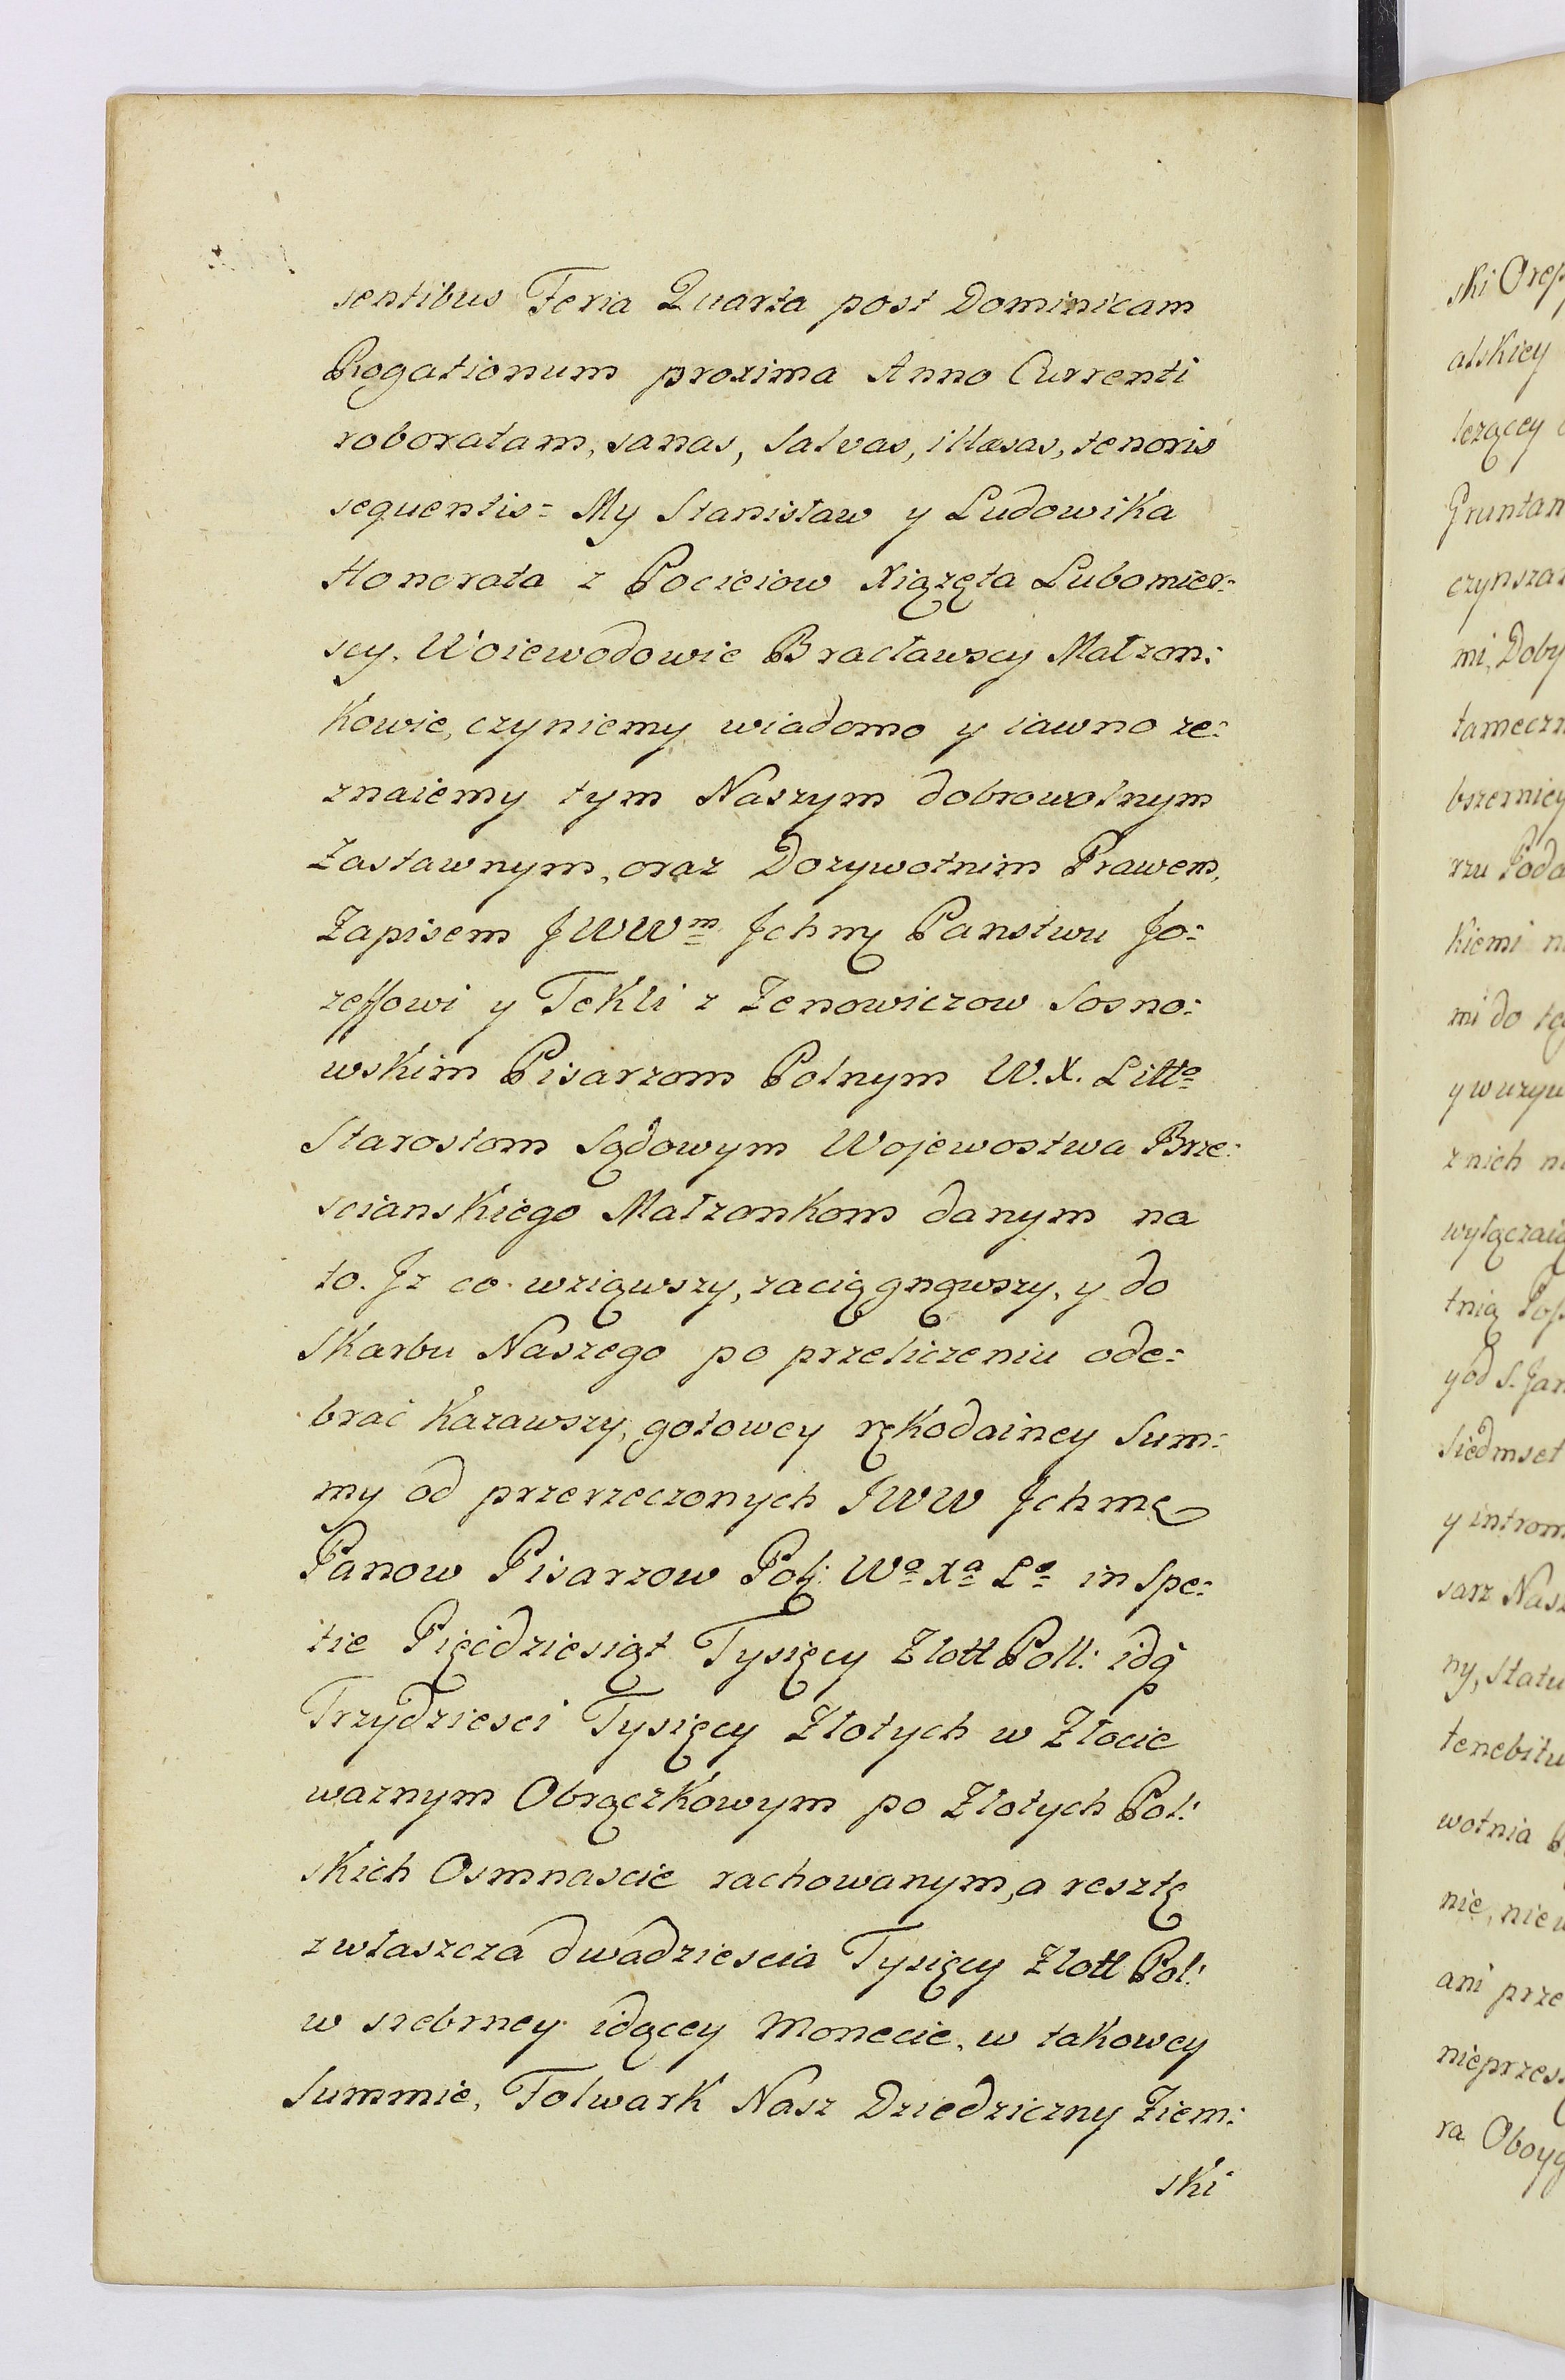 sentibus Feria Quarta post Dominicam
Rogationum proxima Anno Currenti
roboratam, sanas, salvas, illæsas, tenoris
sequentis= My Stanisław y Ludowika
Honorata z Pocieiow Xiązęta Lubomier=
scy, Woiewodowie Bracławscy Małzon:
kowie, czyniemy wiadomo y iawno ze=
znaiemy tym Naszym dobrowolnym
Zastawnym, oraz Dozywotnim Prawem,
Zapisem JWWm Jchmę Panstwu Jo=
zeffowi y Tekli z Zenowiczow Sosno=
wskim Pisarzom Polnym W. X. Litto
Starostom Sądowym Wojewostwa Brze=
scianskiego Małzonkom danym na
to. Jz co wziąwszy, zaciągnąwszy, y do
Skarbu Naszego po przeliczeniu ode=
brać kazawszy, gotowey rękodainey Sum=
my od przerzeczonych JWW Jchmę
Panow Pisarzow Pol: Wo Xa Lo in Spe=
tie Pięćdziesiąt Tysięcy Zlott Poll: idą
Trzydziesci Tysięcy Złotych w Złocie
waznym Obrączkowym po Złotych Pol:
skich Osmnascie rachowanym, a resztę
zwłaszcza dwadziescia Tysięcy Zlott Pol:
w srebrney idącey Monecie, w takowey
Summie, Folwark Nasz Dziedziczny Ziem:
ski
ski Orep
alskiey
lezącey
Gruntam
czynsza
mi, Doby
tameczn
bszerniey
rzu Podo
kiemi n
mi do tę
y wuzyw
z nich n
wyłączaią
tnią Pos
y od S. Jan
Siedmset
y introm
sarz Nasz
ny, statu
tenebitu
wotnia
nie, niew
ani prze
nieprzes
ra Oboyg